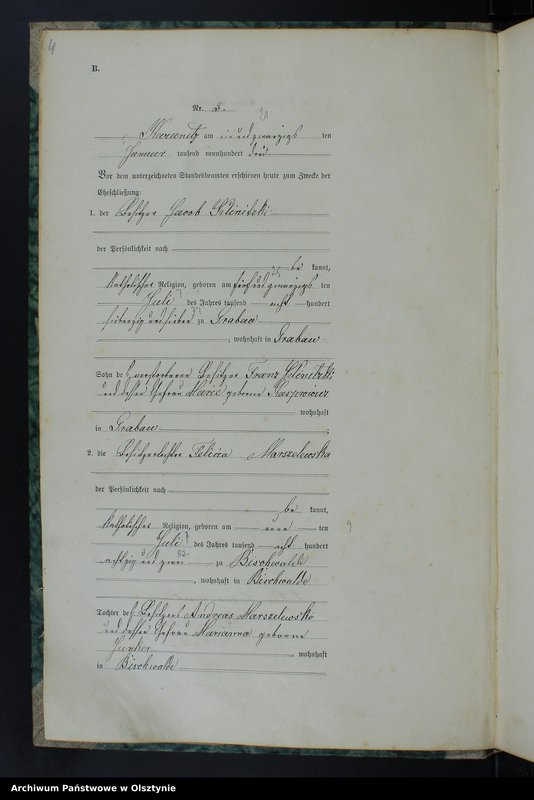 4
B.
Nr. 2.
21
Maraunitz am ein und zwanzigs ten
Januar tausend neunhundert drei
Vor dem unterzeichneten Standesbeamten erschienen heute zum Zwecke der
Eheschließung:
1. der Besitzer Jacob
der Persönlichkeit nach
be kannt,
25
katholischer Religion, geboren am fünf und zwanzigs ten
Juli des Jahres tausend acht hundert
siebenzig und sieben zu Grabau
, wohnhaft in Grabau.
Sohn des verstorbenen Besitzer Franz
und dessen Ehefrau Marie geborene Kasprowicz
wohnhaft
in Grabau
2. die Besitzertochter Felicia Marszelewska
der Persönlichkeit nach
be kannt,
katholischer Religion, geboren am neun ten 9
Juli 7 des Jahres tausend acht hundert
82
achtzig und zwei zu Bischwalde
, wohnhaft in Bischwalde
Tochter des Besitzers Andreas Marszelewski
und dessen Ehefrau Marianna geborene
Junker, wohnhaft
in Bischwalde
Archiwum Państwowe w Olsztynie